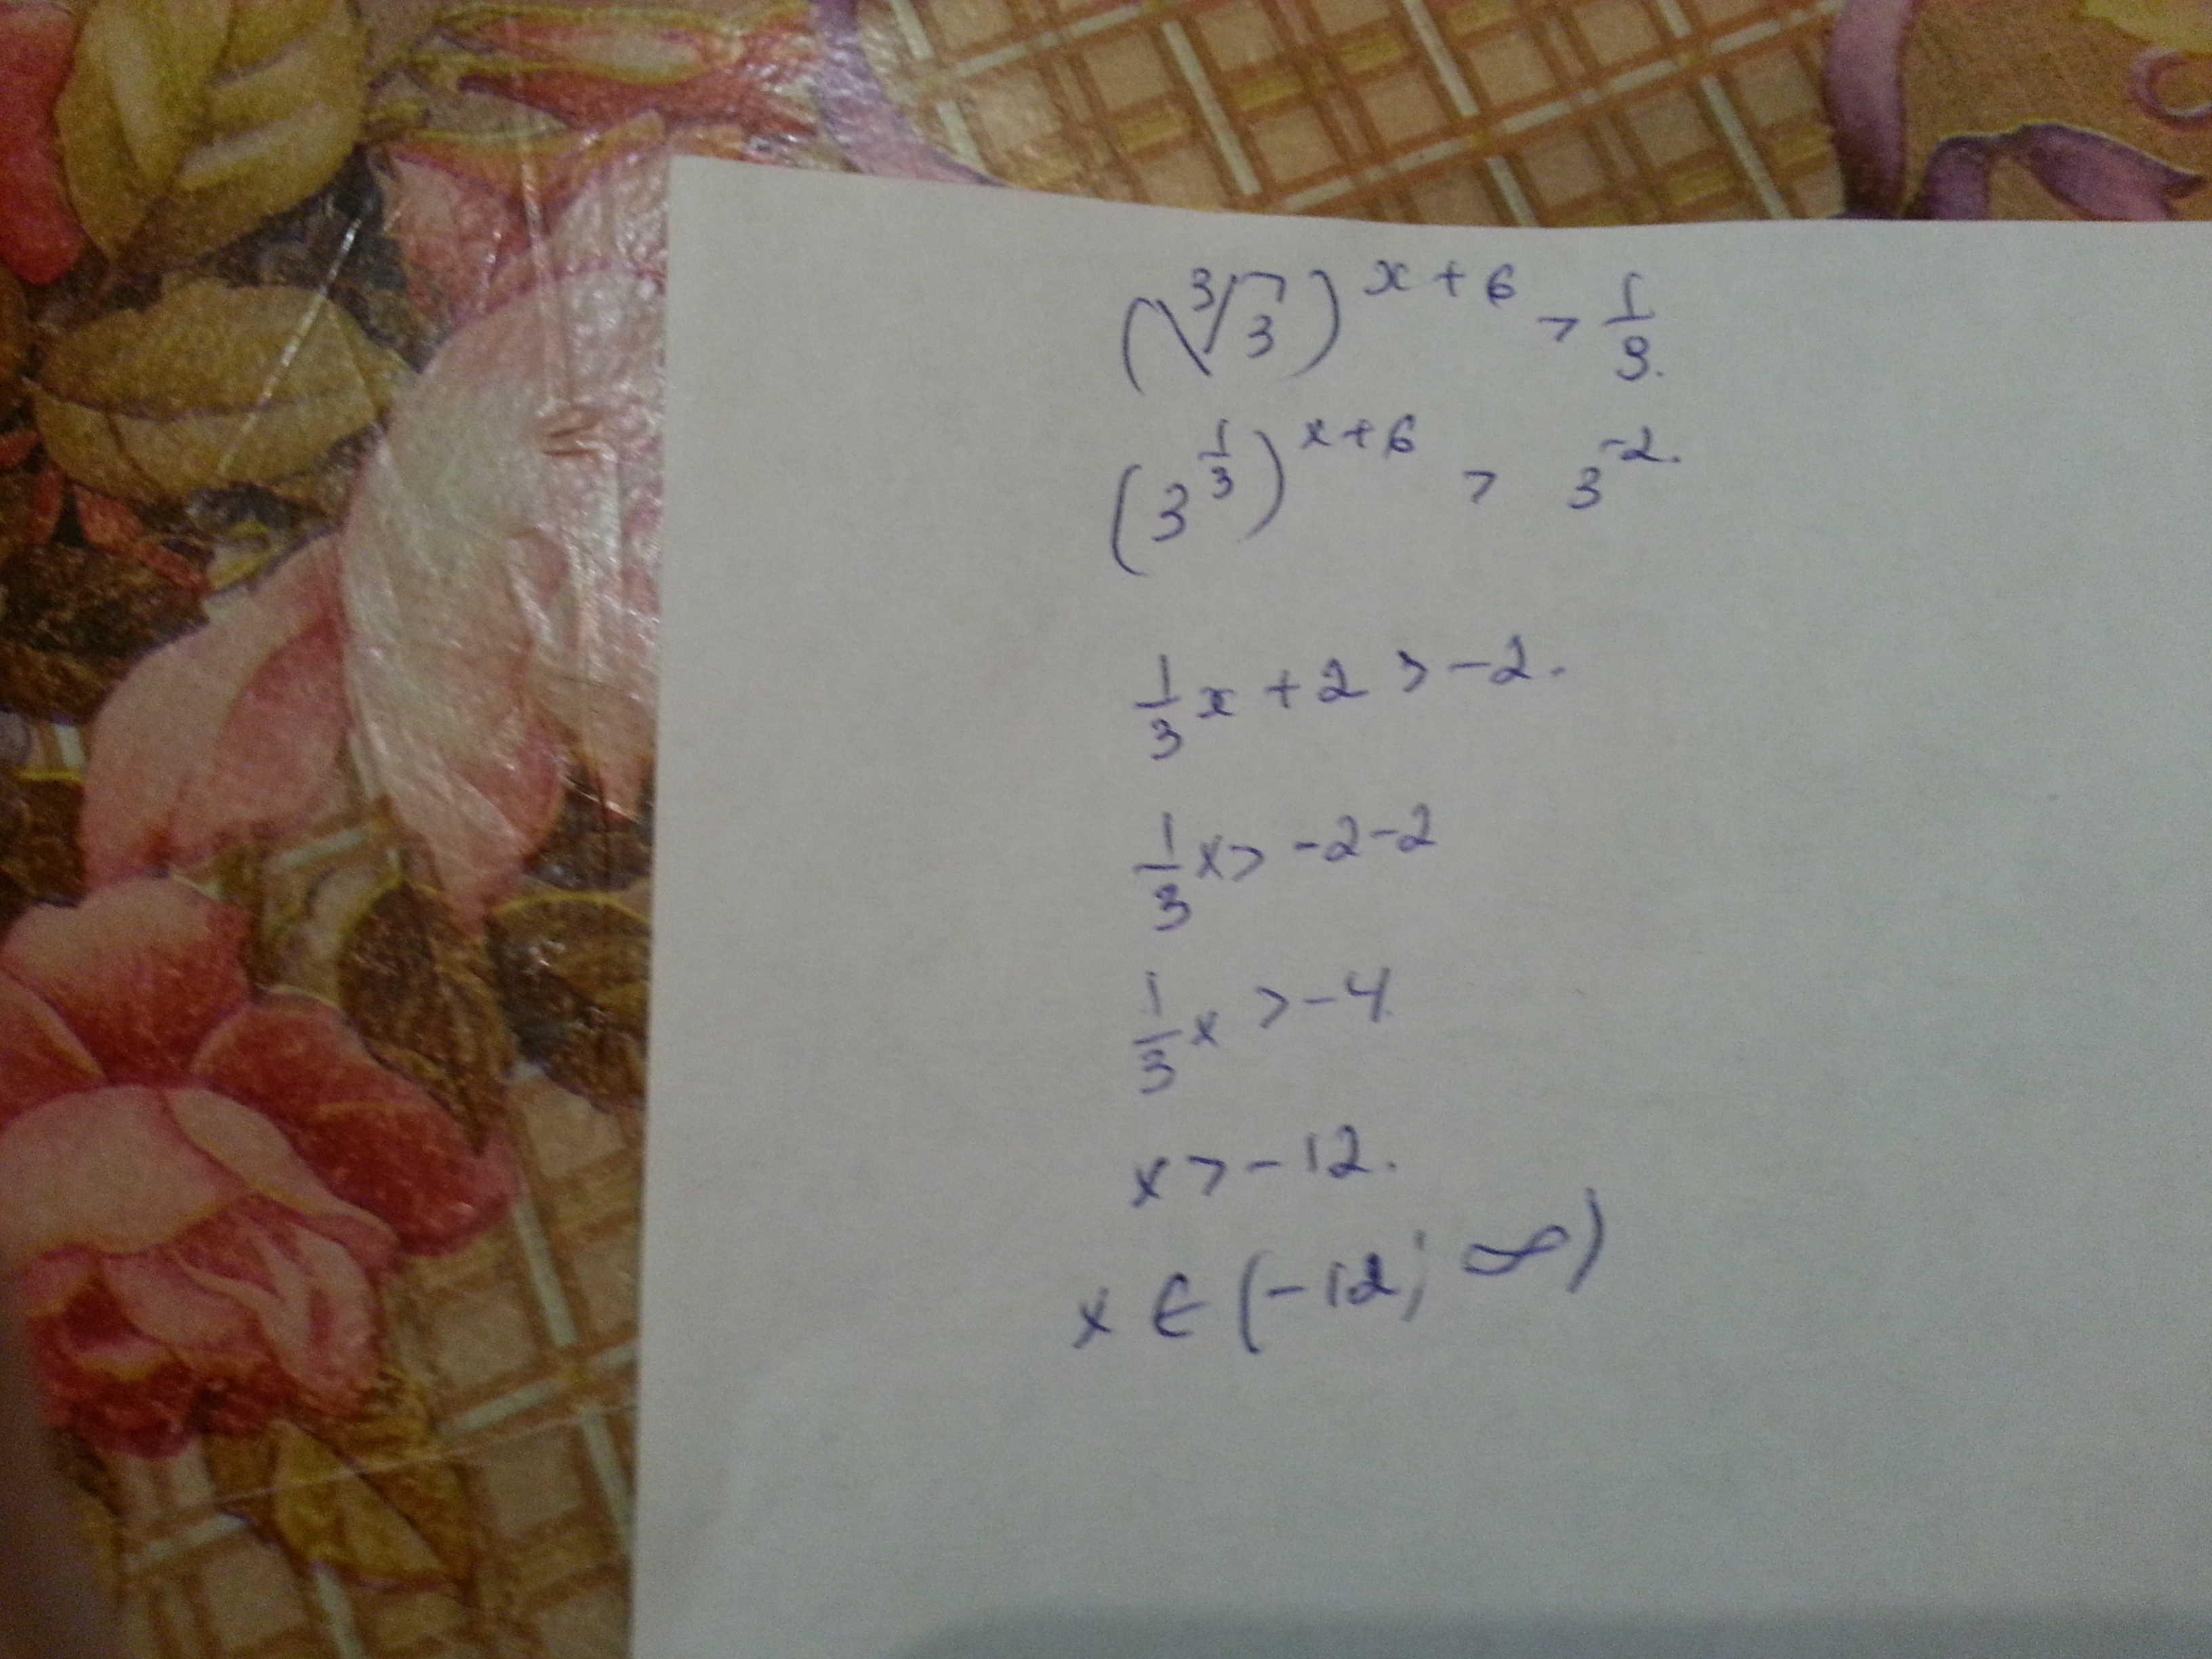 (∛3)^(x+6) > 1/9.
(3^(1/3))^(x+6) > 3^(-2).
1/3 x + 2 > -2.
1/3 x > -2-2
1/3 x > -4
x > -12.
x ∈ (-12; ∞)